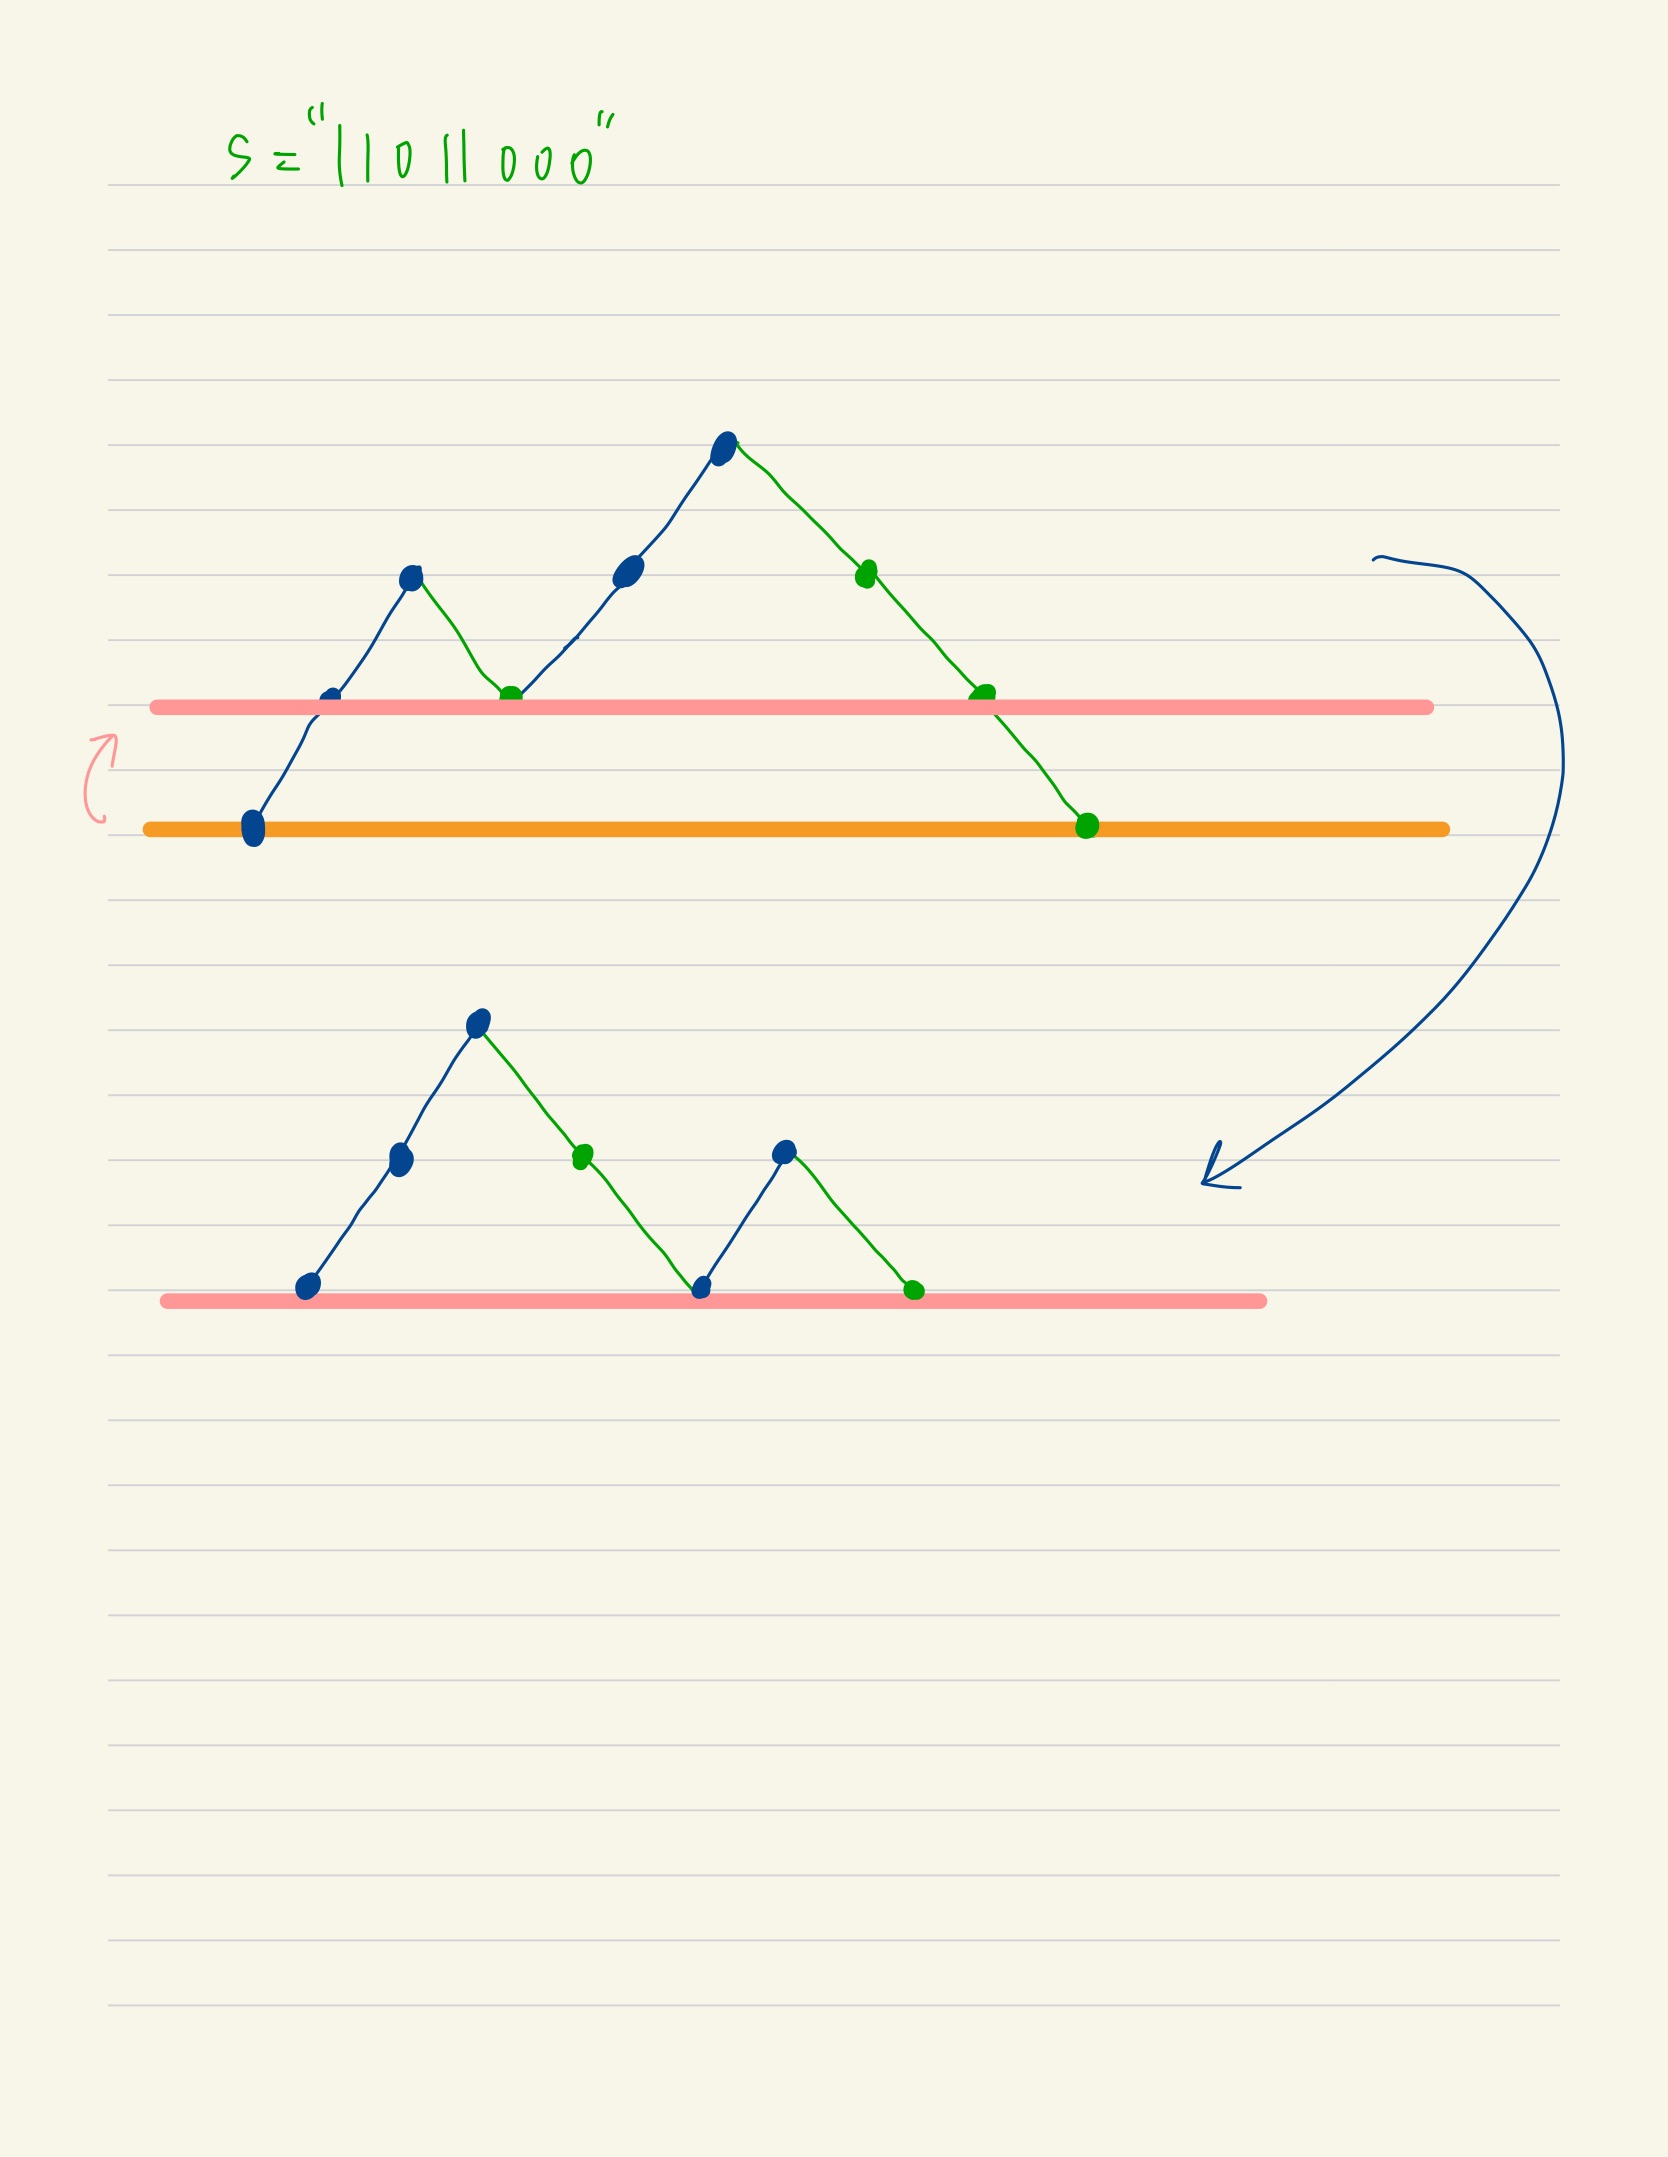 S = "11011000"